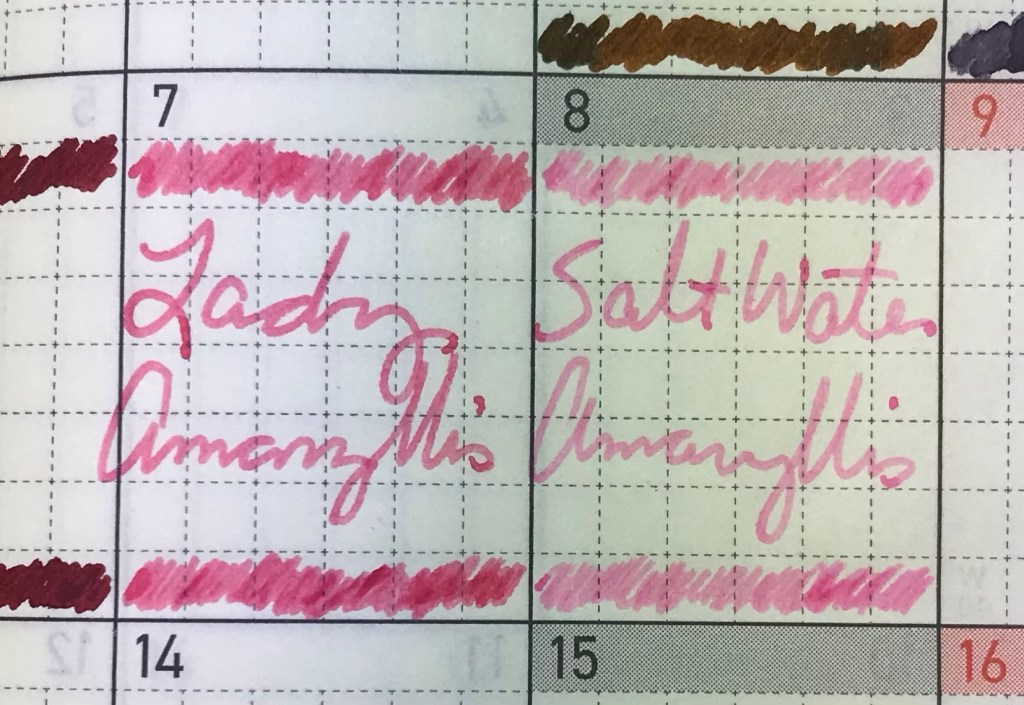 7
8
9
Lady
Amaryllis
Salt Water
Amaryllis
14
15
16